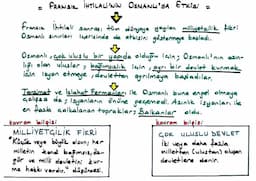 = FRANSIZ İHTİLALİ'NİN OSMANLI'YA ETKİSİ =
Fransız İhtilali sonrası tüm dünyaya yayılan milliyetçilik fikri
Osmanlı sınırları içerisinde de etkisini göstermeye başladı.
Osmanlı, çok uluslu bir yapıda olduğu için; Osmanlı'nın azın-
lığı olan uluslar; bağımsızlık için, ayrı bir devlet kurmak
için isyan etmeye, devletten ayrılmaya başladılar.
Tanzimat ve Islahat Fermanları ile Osmanlı buna engel olmaya
çalışsa da; isyanların önüne geçemedi. Azınlık isyanları ile
fazla çalkalanan topraklar; Balkanlar oldu.
kavram bilgisi
MİLLİYETÇİLİK FİKRİ
"Küçük veya büyük olsun; her
milletin kendi bağımsız, öz-
gür ve milli devletini kur-
ma hakkı vardır." düşüncesi.
kavram bilgisi
ÇOK ULUSLU DEVLET
İki veya daha fazla
milletten (ulustan) oluşan
devletlere denir.